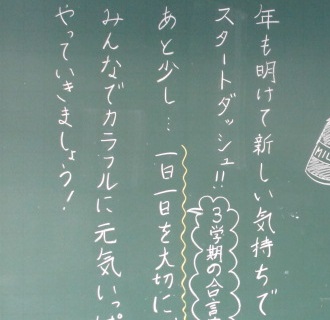 年も明けて新しい気持ちで
スタートダッシュ!!
3学期の合言
あと少し… 一日一日を大切に、
みんなでカラフルに元気いっぱ
やっていきましょう!
MIL